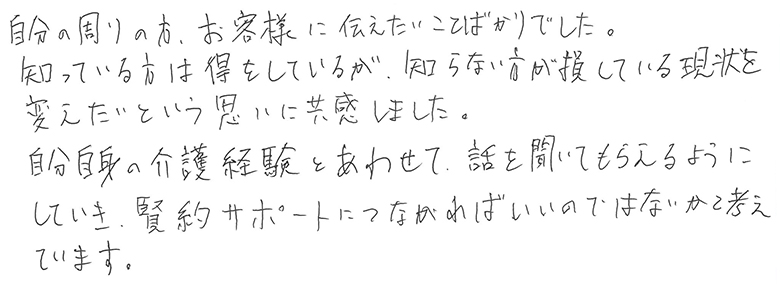 自分の周りの方、お客様に伝えたいことばかりでした。
知っている方は得をしているが、知らない方が損している現状を
変えたいという思いに共感しました。
自分自身の介護経験とあわせて、話を聞いてもらえるように
していき、賢約サポートにつながればいいのではないかと考え
ています。